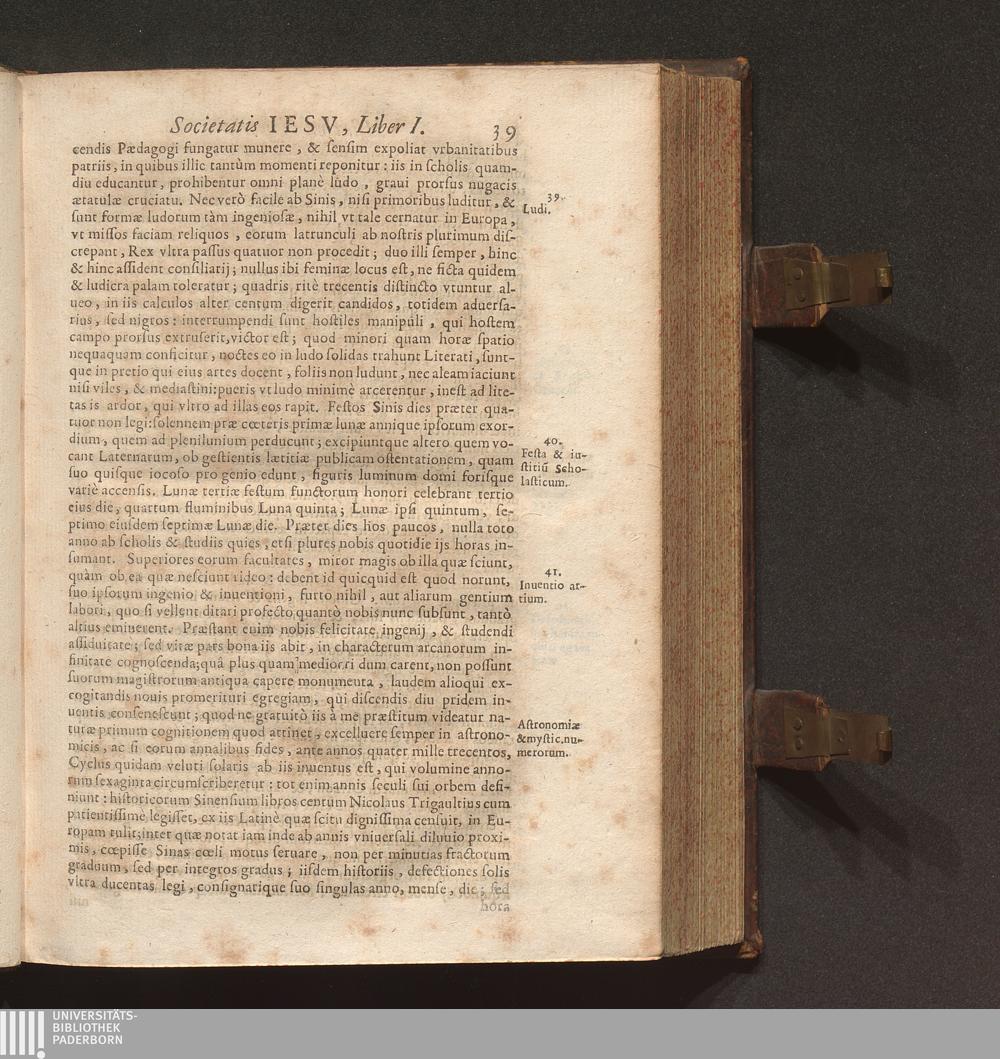 Societatis IESV, Liber I. 39
cendis Pædagogi fungatur munere, & sensim expoliat vrbanitatibus
patriis, in quibus illic tantùm momenti reponitur: iis in scholis quam-
diu educantur, prohibentur omni planè ludo, graui prorsus nugacis
ætatulæ cruciatu. Nec verò facile ab Sinis, nisi primoribus luditur, &
39.
Ludi.
sunt formæ ludorum tàm ingeniosæ, nihil vt tale cernatur in Europa,
vt missos faciam reliquos, eorum latrunculi ab nostris plurimum dis-
crepant, Rex vltra passus quatuor non procedit; duo illi semper, hinc
& hinc assident consiliarij; nullus ibi feminæ locus est, ne ficta quidem
& ludicra palam toleratur; quadris ritè trecentis distincto vtuntur al-
ueo, in iis calculos alter centum digerit candidos, totidem aduersa-
rius, sed nigros: interrumpendi sunt hostiles manipuli, qui hostem
campo prorsus extruserit, victor est; quod minori quam horæ spatio
nequaquam conficitur, noctes eo in ludo solidas trahunt Literati, sunt-
que in pretio qui eius artes docent, foliis non ludunt, nec aleam iaciunt
nisi viles, & mediastini: pueris vt ludo minimè arcerentur, inest ad lite-
tas is ardor, qui vltro ad illas eos rapit. Festos Sinis dies præter qua-
tuor non legi: solennem præ cœteris primæ lunæ annique ipsorum exor-
dium, quem ad plenilunium perducunt; excipiuntque altero quem vo-
cant Laternarum, ob gestientis lætitiæ publicam ostentationem, quam
40.
Festa & iu-
stitiũ Scho-
lasticum.
suo quisque iocoso pro genio edunt, figuris luminum domi forisque
variè accensis. Lunæ tertiæ festum functorum honori celebrant tertio
eius die, quartum fluminibus Luna quinta; Lunæ ipsi quintum, se-
ptimo eiusdem septimæ Lunæ die. Præter dies hos paucos, nulla toto
anno ab scholis & studiis quies, etsi plures nobis quotidie ijs horas in-
sumant. Superiores eorum facultates, miror magis ob illa quæ sciunt,
quàm ob ea quæ nesciunt rideo: debent id quicquid est quod norunt,
41.
Inuentio ar-
tium.
suo ipsorum ingenio & inuentioni, furto nihil, aut aliarum gentium
labori, quo si vellent ditari profecto, quantò nobis nunc subsunt, tantò
altius eminerent. Præstant enim nobis felicitate ingenij, & studendi
assiduitate; sed vitæ pars bona iis abit, in characterum arcanorum in-
finitate cognoscenda; quâ plus quam mediocri dum carent, non possunt
suorum magistrorum antiqua capere monumenta, laudem alioqui ex-
cogitandis nouis promerituri egregiam, qui discendis diu pridem in-
uentis consenescunt; quod ne gratuitò iis à me præstitum videatur na-
turæ primum cognitionem quod attinet, excelluere semper in astrono-
Astronomiæ
& mystic. nu-
merorum.
micis, ac si eorum annalibus fides, ante annos quater mille trecentos,
Cyclus quidam veluti solaris ab iis inuentus est, qui volumine anno-
rum sexaginta circumscriberetur: tot enim annis seculi sui orbem defi-
niunt: historicorum Sinensium libros centum Nicolaus Trigaultius cum
patientissimè legisset, ex iis Latinè quæ scitu dignissima censuit, in Eu-
ropam tulit; inter quæ notat iam inde ab annis vniuersali diluuio proxi-
mis, cœpisse Sinas cœli motus seruare, non per minutias fractorum
graduum, sed per integros gradus; iisdem historiis, defectiones solis
vltra ducentas legi, consignarique suo singulas anno, mense, die; sed
hora
UNIVERSITÄTS-
BIBLIOTHEK
PADERBORN